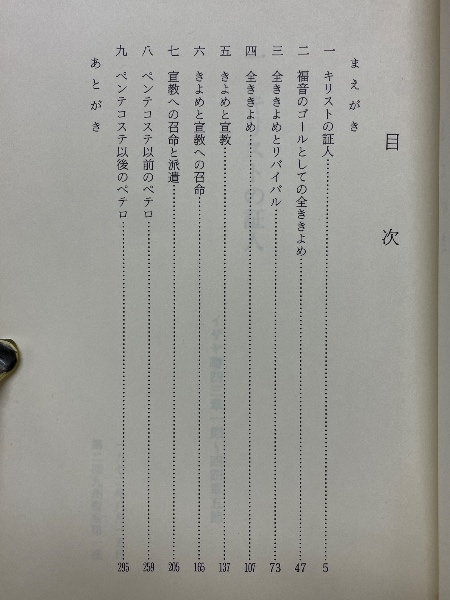 目次
まえがき
一 キリストの証人……………………5
二 福音のゴールとしての全ききよめ……………………47
三 全ききよめとリバイバル……………………73
四 全ききよめ……………………107
五 きよめと宣教……………………137
六 きよめと宣教への召命……………………165
七 宣教への召命と派遣……………………205
八 ペンテコステ以前のペテロ……………………259
九 ペンテコステ以後のペテロ……………………295
あとがき